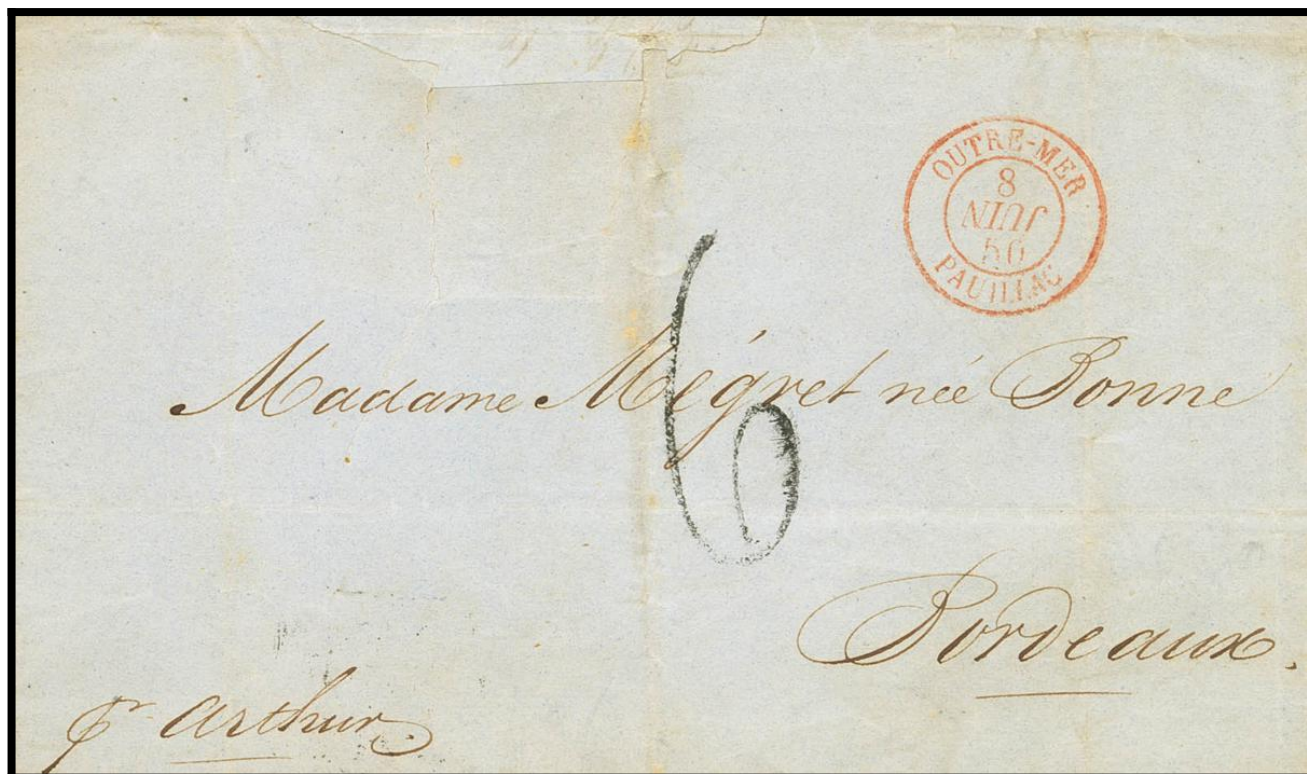 OUTRE-MER
8
JUIN
50
PAUILLAC
6
Madame Mégret née Bonné
Bordeaux.
pr Arthur